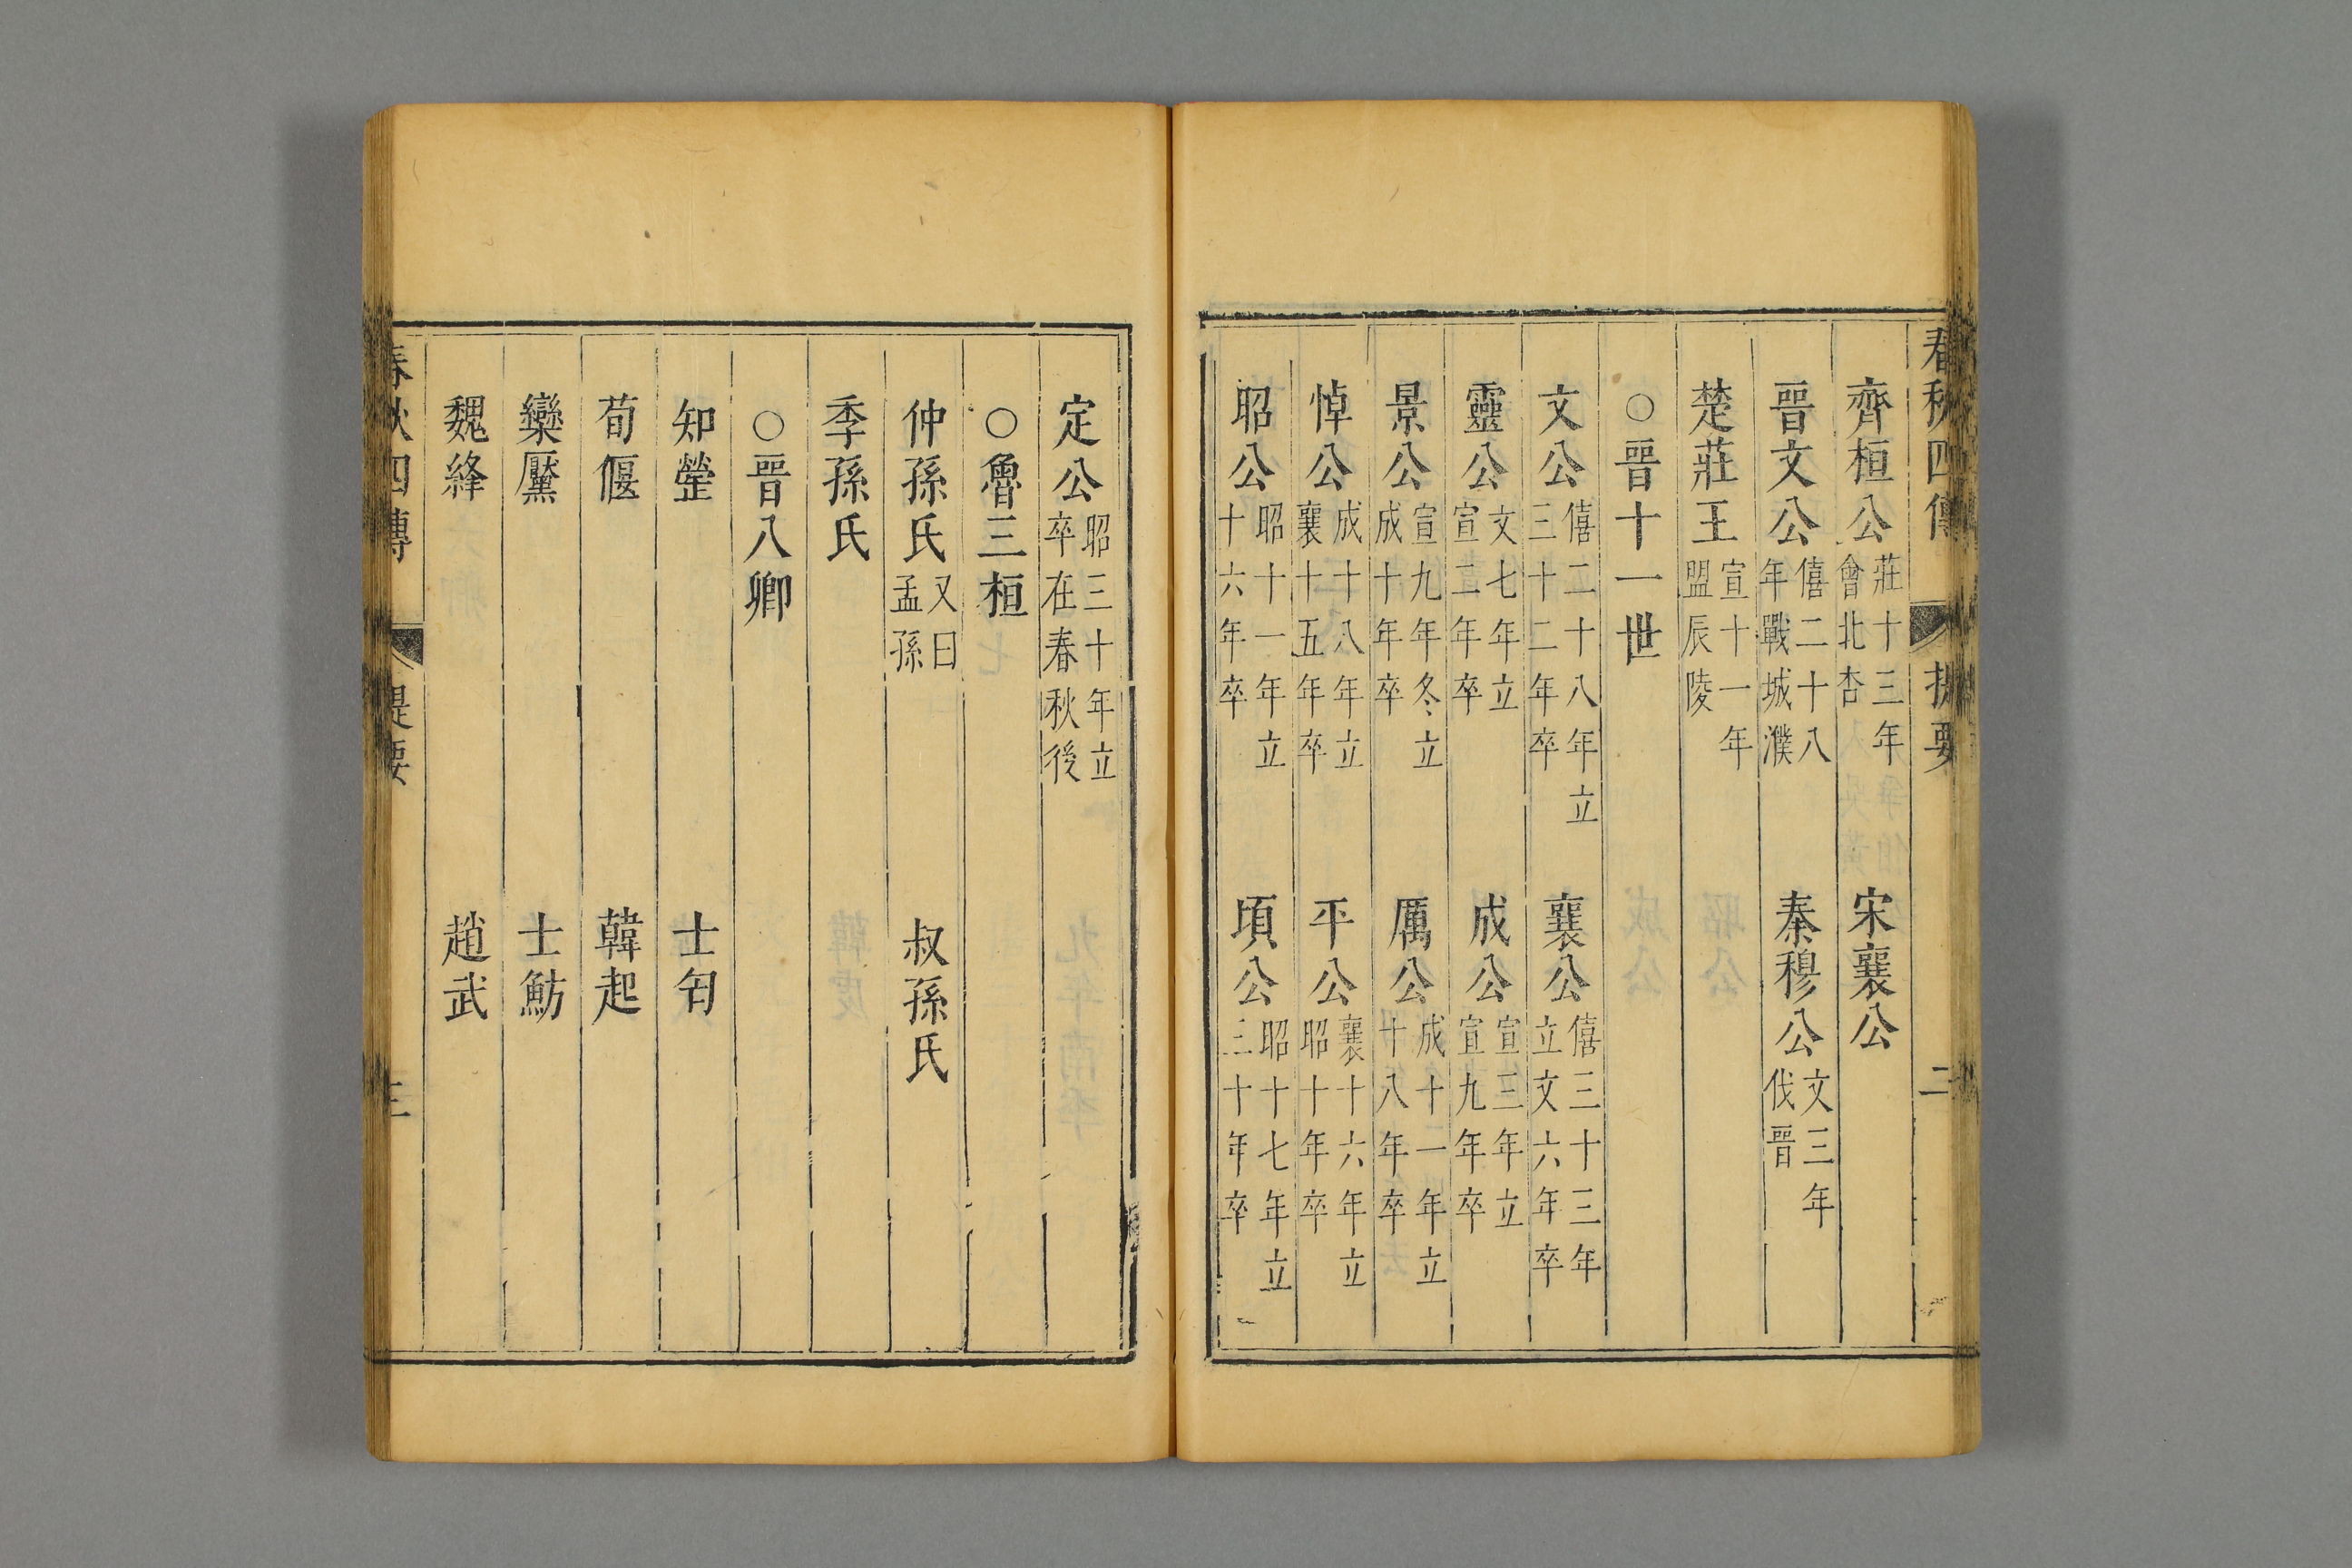 春秋四傳 提要 二
齊桓公 莊十三年會北杏 宋襄公
晉文公 僖二十八年戰城濮 秦穆公 文三年伐晉
楚莊王 宣十一年盟辰陵
○晉十一世
文公 僖二十八年立三十二年卒 襄公 僖三十三年立文六年卒
靈公 文七年立宣二年卒 成公 宣三年立宣九年卒
景公 宣九年冬立成十年卒 厲公 成十一年立十八年卒
悼公 成十八年立襄十五年卒 平公 襄十六年立昭十年卒
昭公 昭十一年立十六年卒 頃公 昭十七年立三十年卒
定公 昭三十年立卒在春秋後
○魯三桓
仲孫氏 又曰孟孫 叔孫氏
季孫氏
○晉八卿
知罃 士匄
荀偃 韓起
欒黶 士魴
魏絳 趙武
春秋四傳 提要 三